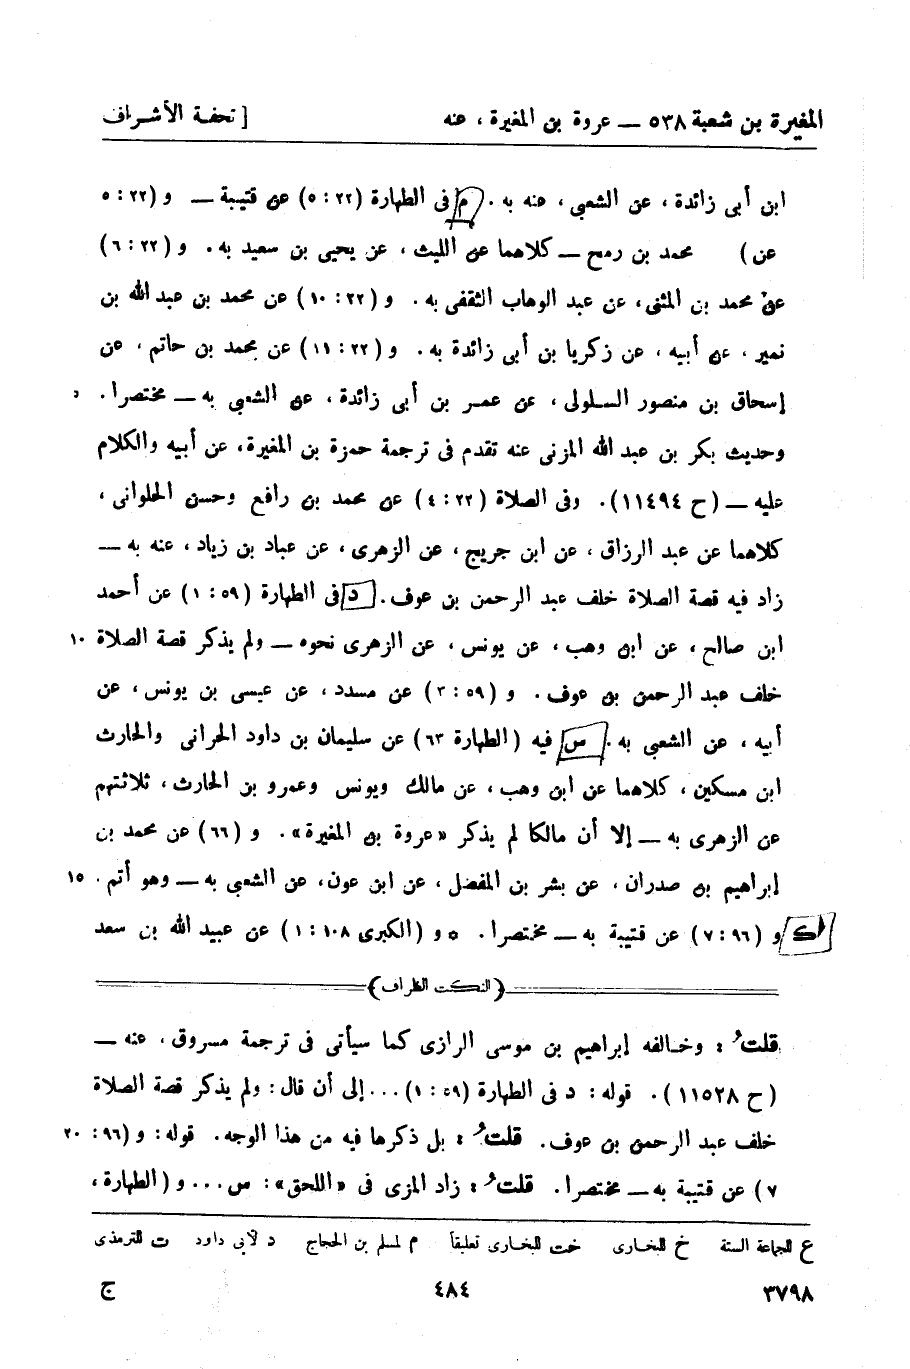 المغيرة بن شعبة ٥٣٨ — عروة بن المغيرة ، عنه [ تحفة الأشراف
ابن أبى زائدة ، عن الشعبى ، عنه به . م فى الطهارة (٢٢ : ٥) عن قتيبة — و (٢٢ : ٥
عن ) محمد بن رمح — كلاهما عن الليث ، عن يحيى بن سعيد به . و (٢٢ : ٦)
عن محمد بن المثنى ، عن عبد الوهاب الثقفى به . و (٢٢ : ١٠) عن محمد بن عبد الله بن
نمير ، عن أبيه ، عن زكريا بن أبى زائدة به . و (٢٢ : ١١) عن محمد بن حاتم ، عن
إسحاق بن منصور السلولى ، عن عمر بن أبى زائدة ، عن الشعبى به — مختصرا .
وحديث بكر بن عبد الله المزنى عنه تقدم فى ترجمة حمزة بن المغيرة ، عن أبيه والكلام
عليه — (ح ١١٤٩٤) . وفى الصلاة (٢٢ : ٤) عن محمد بن رافع وحسن الحلوانى ،
كلاهما عن عبد الرزاق ، عن ابن جريج ، عن الزهرى ، عن عباد بن زياد ، عنه به —
زاد فيه قصة الصلاة خلف عبد الرحمن بن عوف . د فى الطهارة (٥٩ : ١) عن أحمد
ابن صالح ، عن ابن وهب ، عن يونس ، عن الزهرى نحوه — ولم يذكر قصة الصلاة ١٠
خلف عبد الرحمن بن عوف . و (٥٩ : ٣) عن مسدد ، عن عيسى بن يونس ، عن
أبيه ، عن الشعبى به . س فيه (الطهارة ٦٣) عن سليمان بن داود الحرانى والحارث
ابن مسكين ، كلاهما عن ابن وهب ، عن مالك ويونس وعمرو بن الحارث ، ثلاثتهم
عن الزهرى به — إلا أن مالكا لم يذكر «عروة بن المغيرة» . و (٦٦) عن محمد بن
إبراهيم بن صدران ، عن بشر بن المفضل ، عن ابن عون ، عن الشعبى به — وهو أتم . ١٥
ك و (٩٦ : ٧) عن قتيبة به — مختصرا . ٥ و (الكبرى ١٠٨ : ١) عن عبيد الله بن سعد
(النكت الظراف)
قلتُ : وخالفه إبراهيم بن موسى الرازى كما سيأتى فى ترجمة مسروق ، عنه —
(ح ١١٥٢٨) . قوله : د فى الطهارة (٥٩ : ١) ... إلى أن قال : ولم يذكر قصة الصلاة
خلف عبد الرحمن بن عوف . قلتُ : بل ذكرها فيه من هذا الوجه . قوله : و (٩٦ : ٢٠
٧) عن قتيبة به — مختصرا . قلتُ : زاد المزى فى «اللحق» : س ... و (الطهارة ،
ع للجماعة الستة خ للبخارى خت للبخارى تعليقاً م لمسلم بن الحجاج د لأبى داود ت للترمذى
٣٧٩٨ ٤٨٤ ج